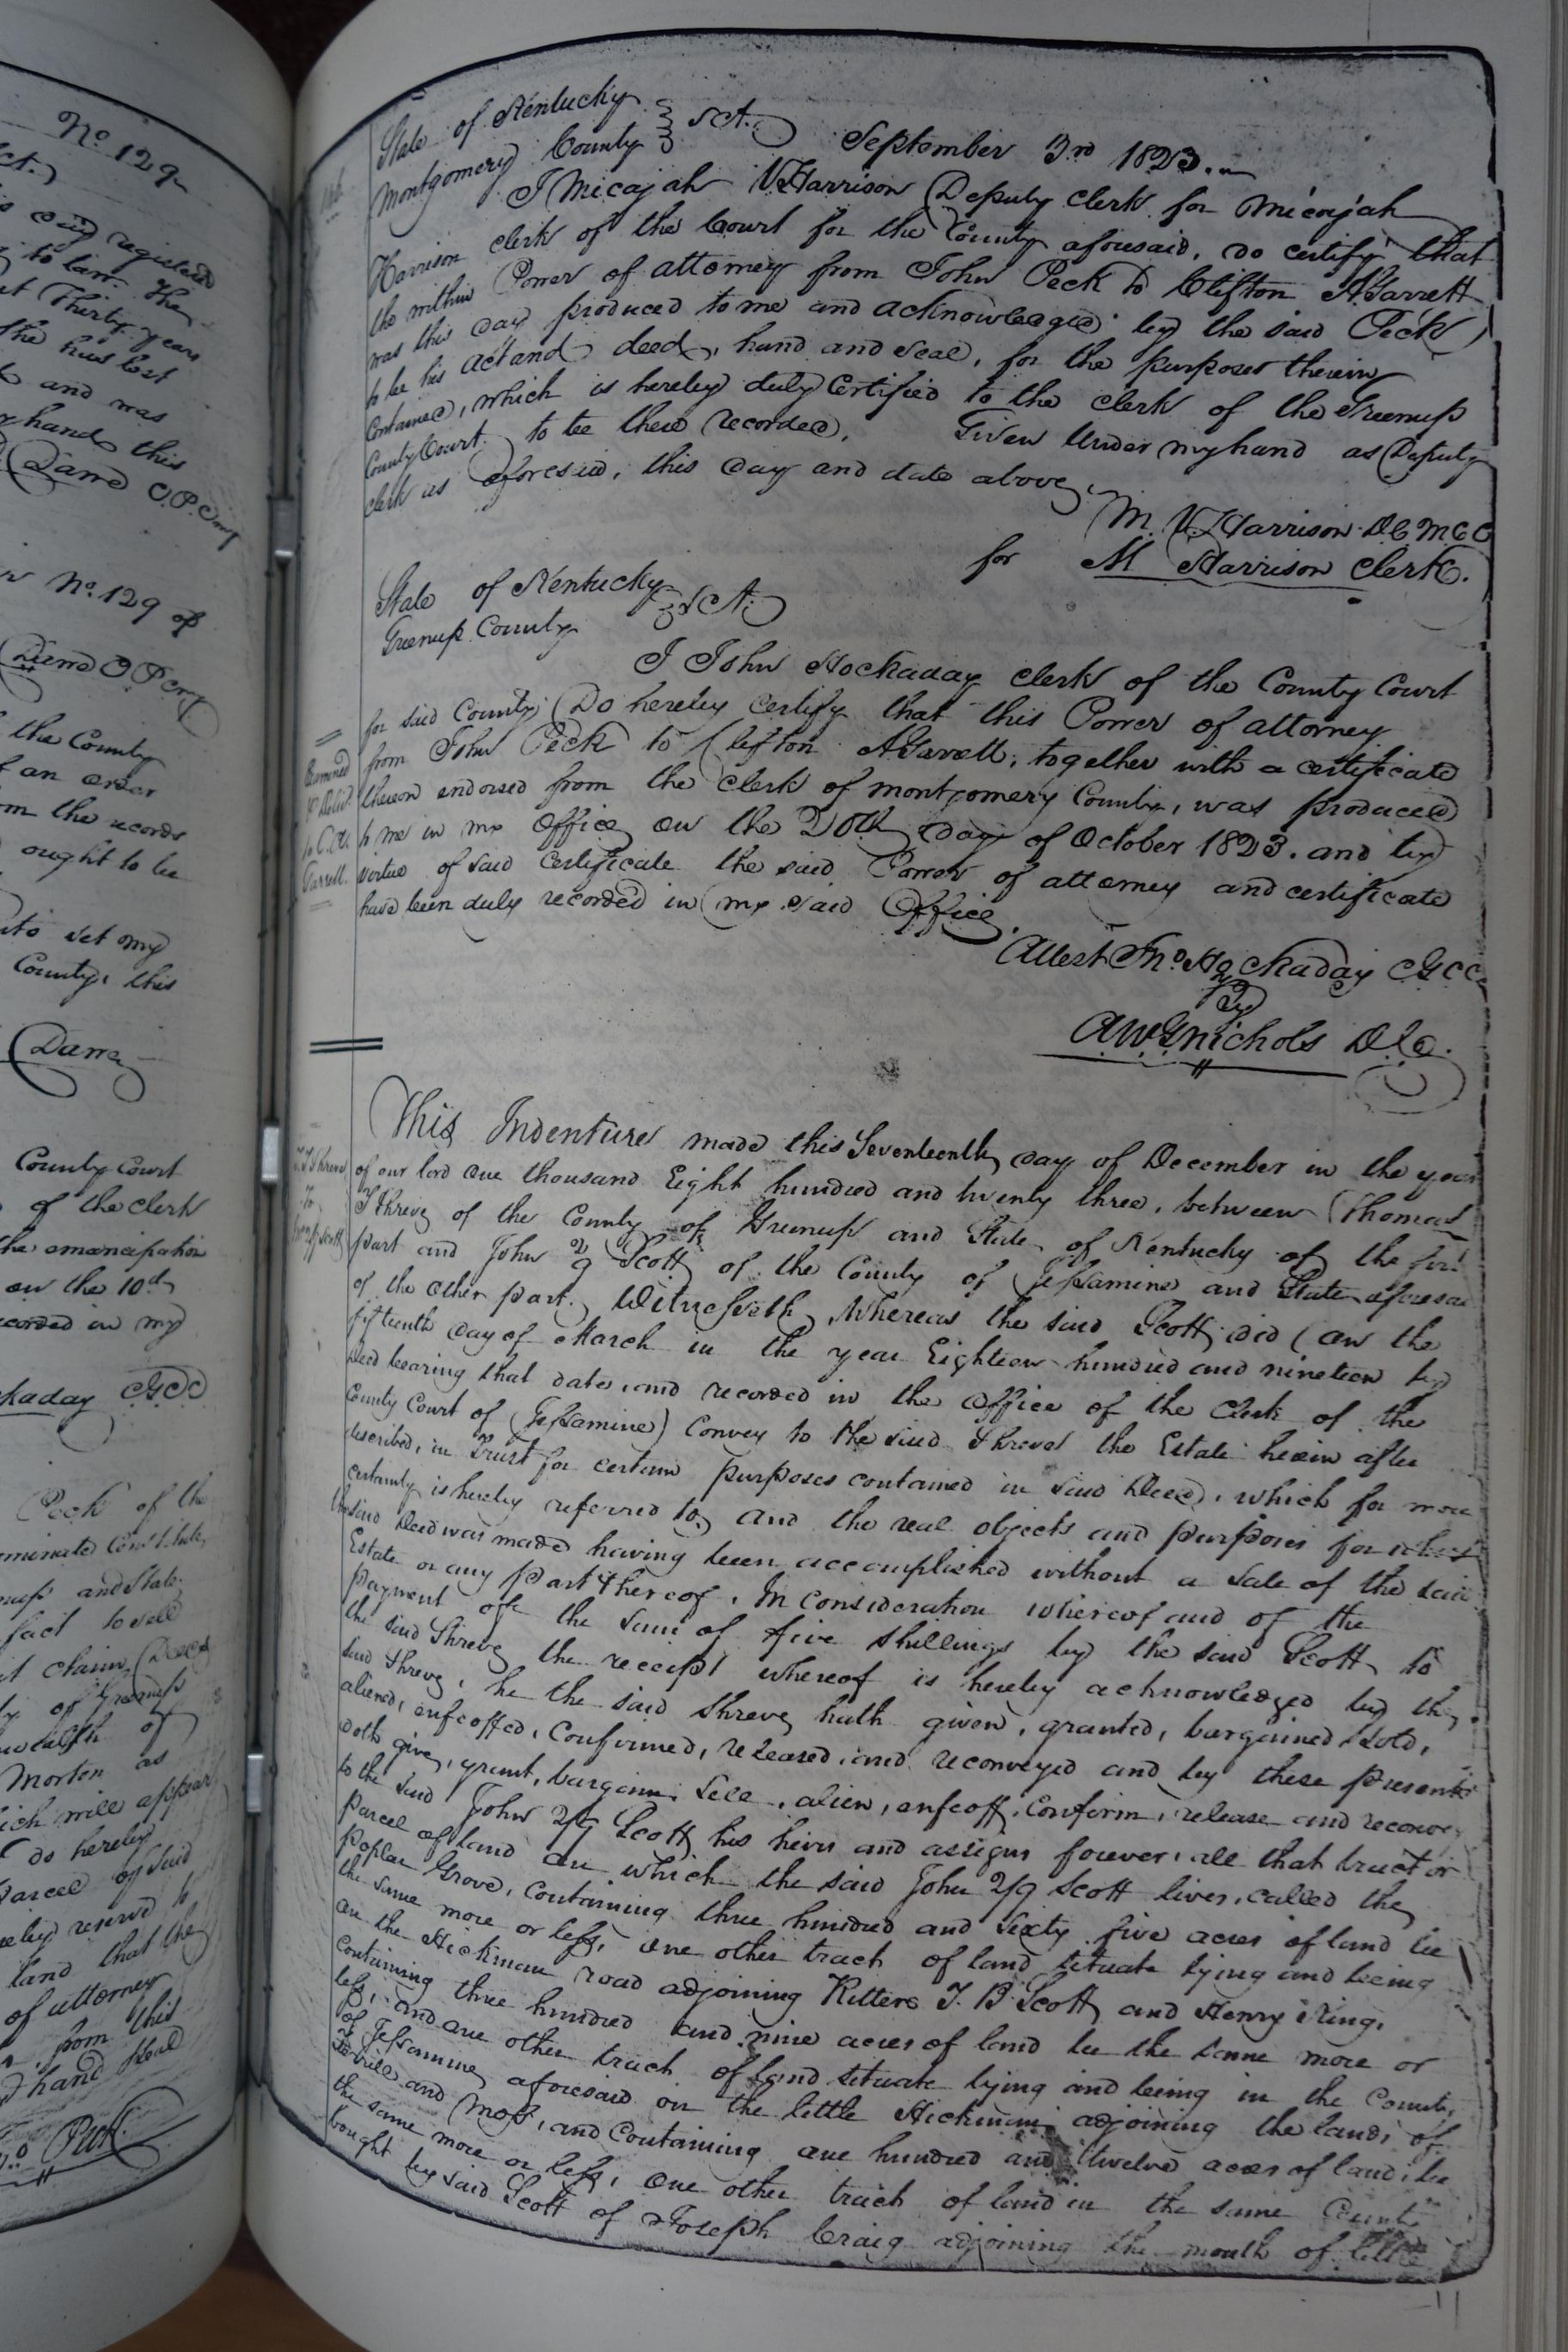 No. 129
ct.)
is cirt registered
to law. The
at Thirty years
the has lost
and was
hand this
Darra
No. 129 of
the County
of an order
om the records
ought to be
nto set my
County, this
Darra
County Court
of the clerk
the emancipation
on the 10th
recorded in my
kaday CGCC
Peck of the
and State
fact to sell
claim
of Greenup
Morton as
ich will appear
do hereby
parcel of said
reserve to
land that the
of attorney
from this
hand Seal
Peck
State of Kentucky
Montgomery County } Sct. September 3rd 1823.
I Micajah V. Harrison Deputy clerk for Micajah
Harrison clerk of the Court for the County aforesaid, do certify that
the within Power of attorney from John Peck to Clifton A Garrett
was this day produced to me and acknowledged by the said Peck
to be his act and deed, hand and seal, for the purposes therein
Contained, which is hereby duly Certified to the clerk of the Greenup
County Court to be there recorded. Given Under my hand as Deputy
clerk as aforesaid, this day and date above.
M. V. Harrison D.C.M.C.C
for M Harrison Clerk.
State of Kentucky
Greenup County } Sct.
I John Hockaday clerk of the County Court
for said County, Do hereby certify that this Power of attorney
from John Peck to Clifton A Garrett, together with a certificate
thereon endorsed from the clerk of Montgomery County, was produced
to me in my Office on the 20th day of October 1823. and by
virtue of said certificate the said Power of attorney and certificate
have been duly recorded in my said Office.
Examined
& Delivd.
to C. A.
Garrett.
Attest Jno. Hockaday CGCC
By
A W G Nichols D.C.
This Indenture made this Seventeenth day of December in the year
of our lord one thousand Eight hundred and twenty three, between Thomas
T Shreve of the County of Greenup and State of Kentucky of the first
part and John Scott of the County of Jessamine and State aforesaid
of the other part, Witnesseth, Whereas the said Scott did (on the
fifteenth day of March in the year Eighteen hundred and nineteen by
Deed bearing that date, and recorded in the office of the Clerk of the
County Court of Jessamine) Convey to the said Shreve the Estate herein after
described, in Trust for certain purposes contained in said Deed, which for more
certainty is hereby referred to, and the real objects and purposes for which
the said Deed was made having been accomplished without a sale of the said
Estate or any part thereof. In consideration whereof and of the
payment of the sum of five shillings by the said Scott to
the said Shreve the receipt whereof is hereby acknowledged by the
said Shreve, he the said Shreve hath given, granted, bargained, sold,
aliened, enfeoffed, Confirmed, released, and reconveyed and by these presents
doth give, grant, bargain, Sell, alien, enfeoff, Confirm, release and reconvey
to the said John Scott his heirs and assigns forever, all that tract or
parcel of land on which the said John Scott lives, called the
Poplar Grove, Containing three hundred and sixty five acres of land be
the same more or less, one other tract of land situate lying and being
on the Hickman road adjoining Ritters T. B. Scott and Henry King,
Containing three hundred and nine acres of land be the same more or
less, and one other tract of land situate lying and being in the County
of Jessamine aforesaid on the little Hickman adjoining the lands of
and Moss, and Containing one hundred and twelve acres of land, be
the same more or less, one other tract of land in the same County
bought by said Scott of Joseph Craig adjoining the mouth of little